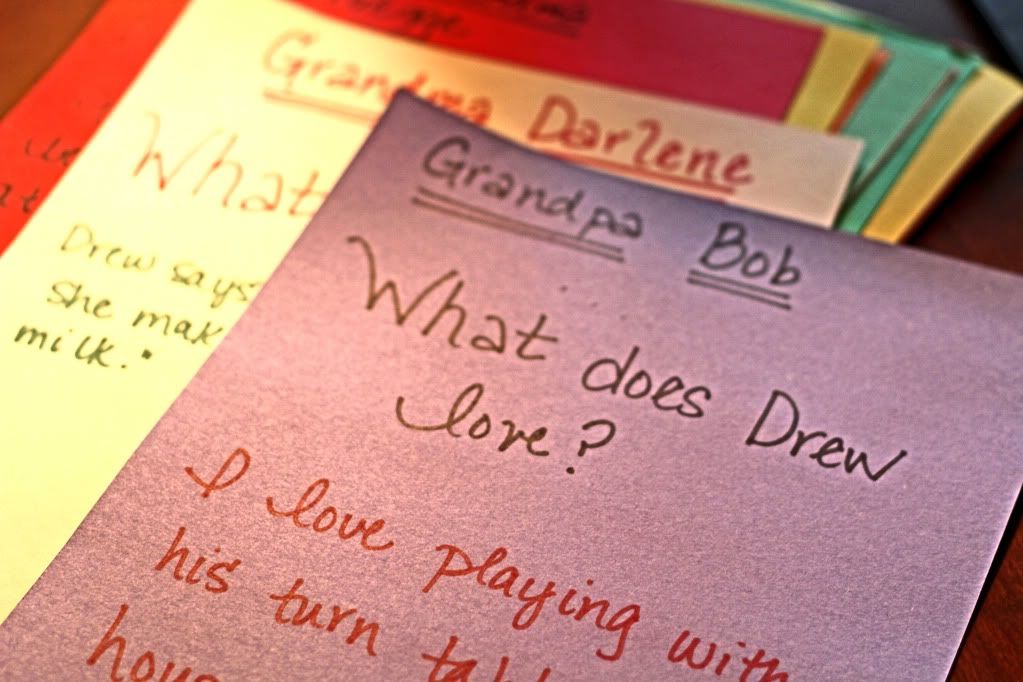 Grandma Darlene
What
Drew says
she mak
milk."
Grandpa Bob
What does Drew
love?
I love playing with
his turn tabl
hous